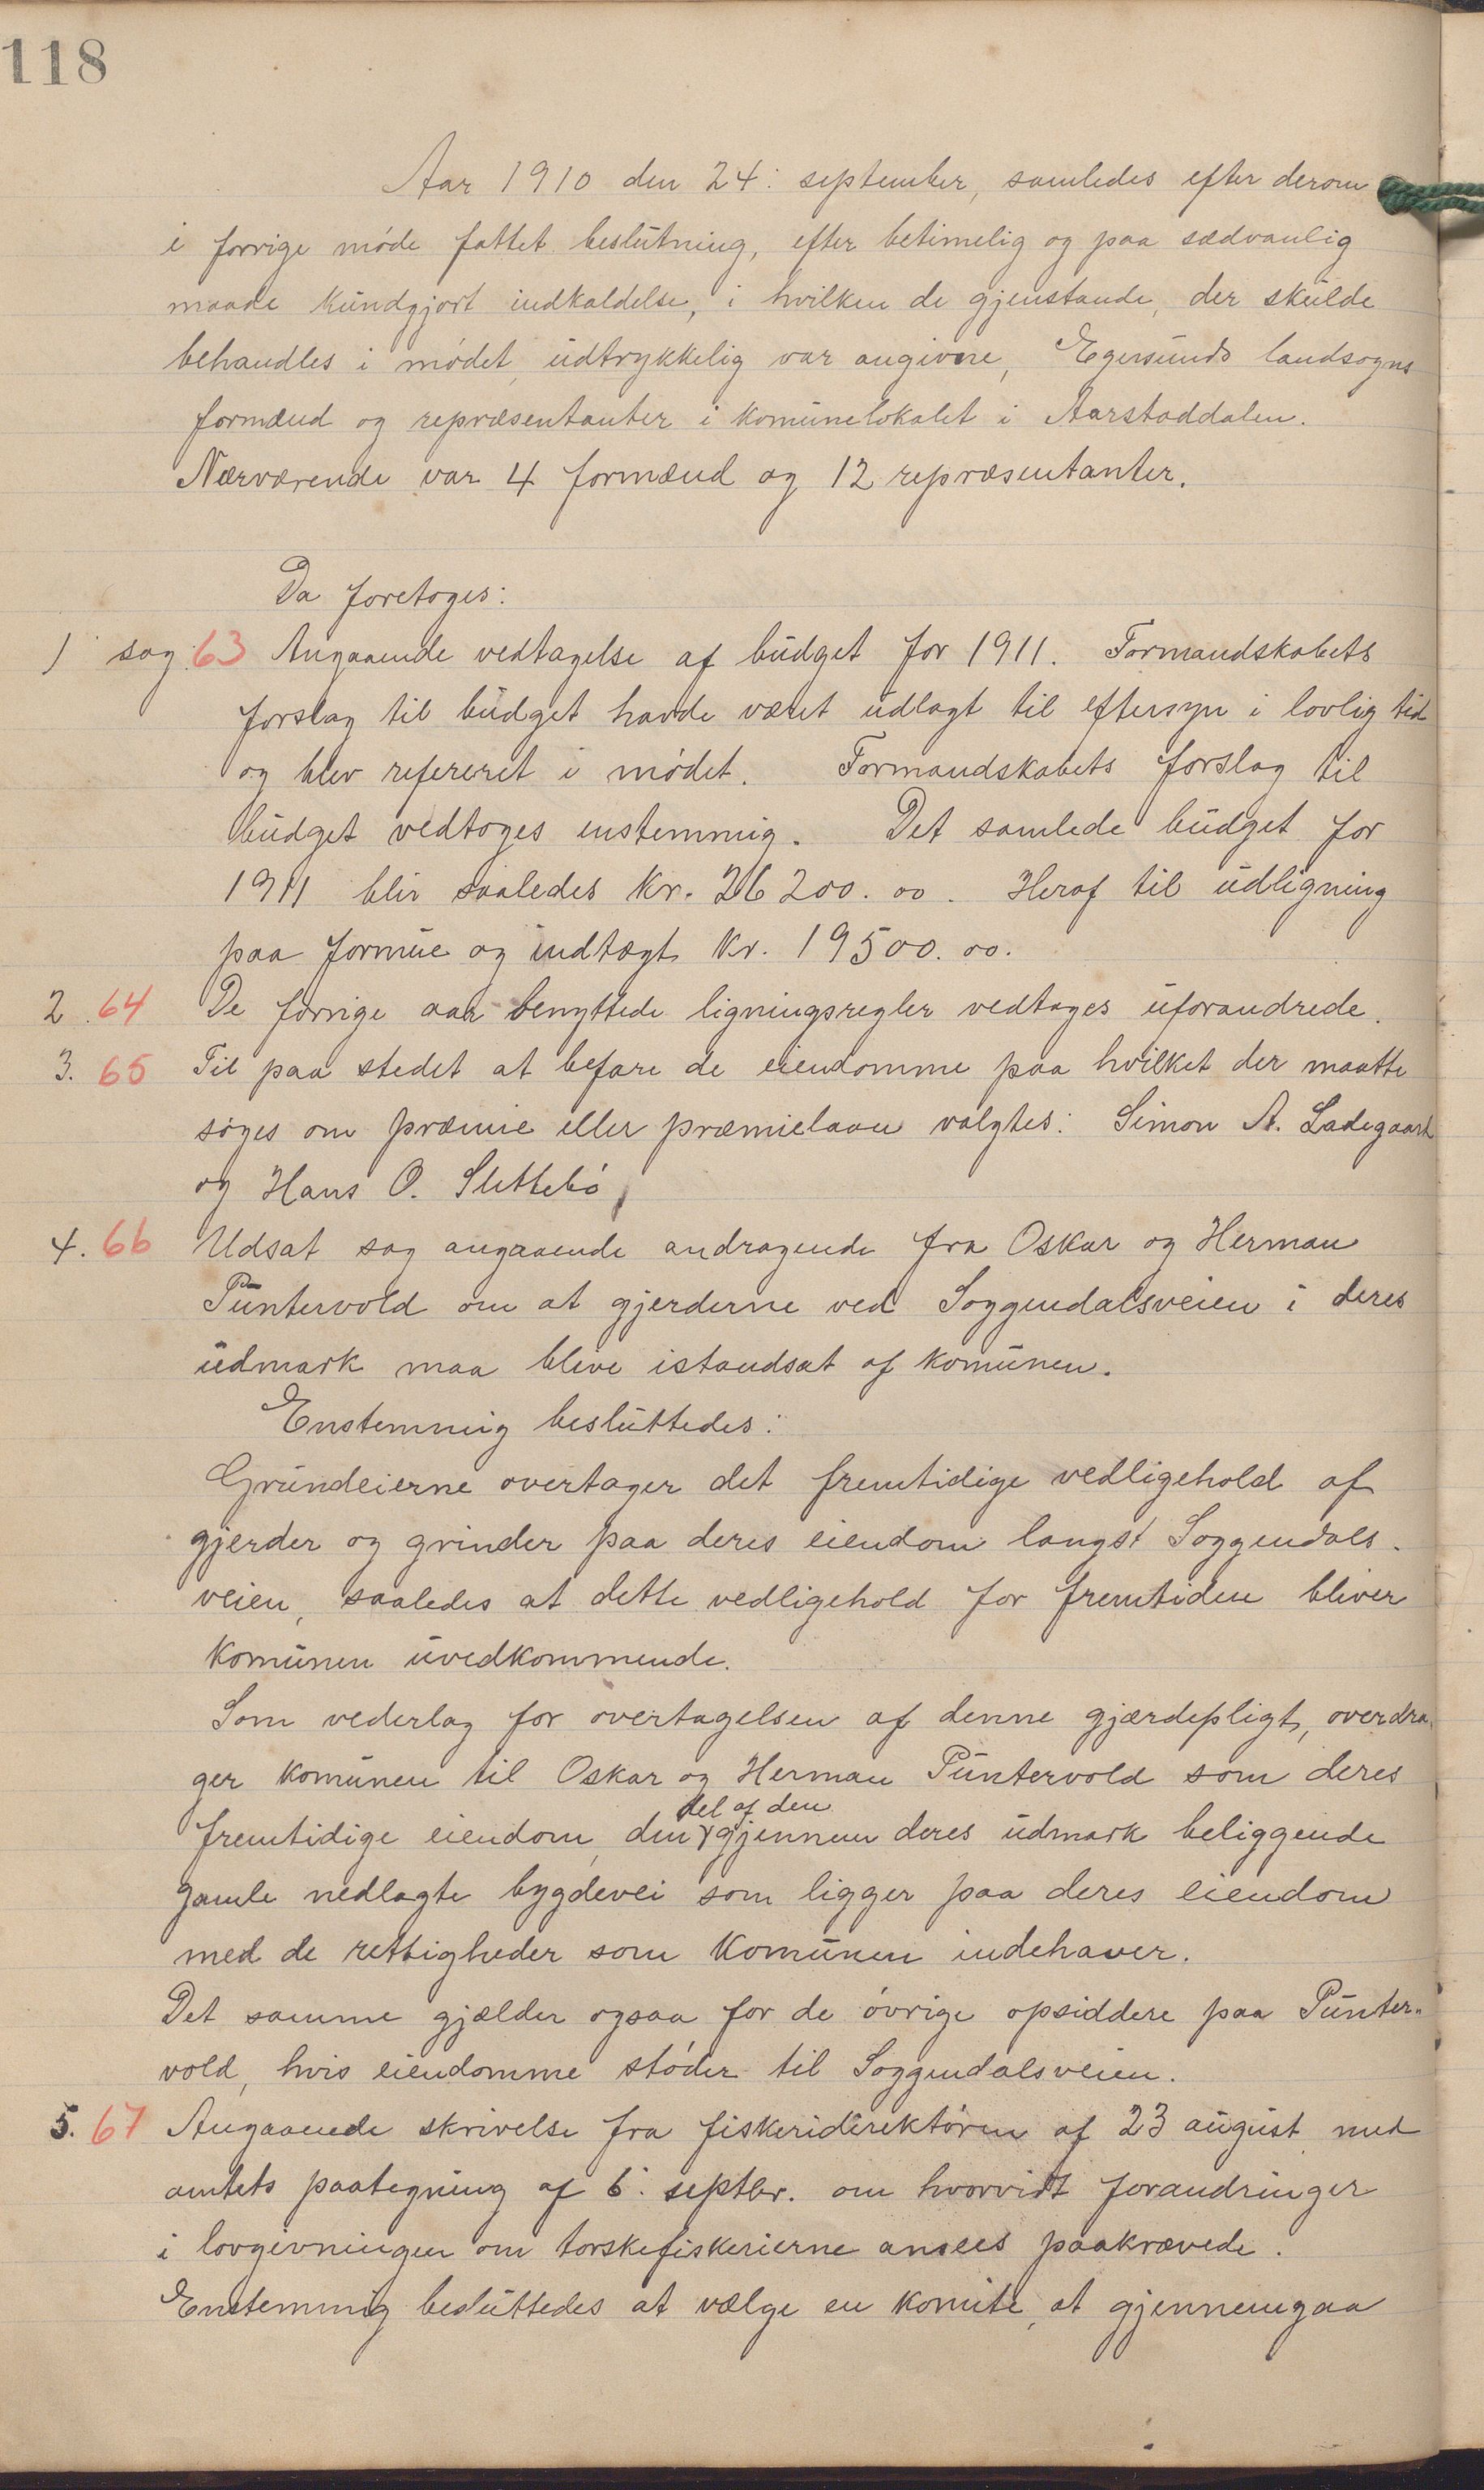 118
Aar 1910 den 24: september, samledes efter derom
i forrige møde fattet beslutning, efter betimelig og paa sædvanlig
maade kundgjort indkaldelse, i hvilken de gjenstande, der skulde
behandles i mødet, udtrykkelig var angivne, Egersunds landsogns
formænd og repræsentanter i komunelokalet i Aarstaddalen.
Nærværende var 4 formænd og 12 repræsentanter.
Da foretoges:
1 sag 63 Angaaende vedtagelse af budget for 1911. Formandskabets
forslag til budget havde været udlagt til eftersyn i lovlig tid
og blev refereret i mødet. Formandskabets forslag til
budget vedtoges enstemmig. Det samlede budget for
1911 blir saaledes Kr. 26200.00. Heraf til udligning
paa formue og indtægt Kr. 19500.00.
2. 64 De forrige aar benyttede ligningsregler vedtages uforandrede.
3. 65 Til paa stedet at befare de eiendomme paa hvilket der maatte
søges om præmie eller præmielaan valgtes: Simon A. Ladegaard
og Hans O. Slettebø
4. 66 Udsat sag angaaende andragende fra Oskar og Herman
Puntervold om at gjerderne ved Soggendalsveien i deres
udmark maa blive istandsat af komunen.
Enstemmig besluttedes:
Grundeierne overtager det fremtidige vedligehold af
gjerder og grinder paa deres eiendom langst Soggendals-
veien, saaledes at dette vedligehold for fremtiden bliver
komunen uvedkommende.
Som vederlag for overtagelsen af denne gjærdepligt, overdra-
ger komunen til Oskar og Herman Puntervold som deres
del af den
fremtidige eiendom, den gjennem deres udmark beliggende
gamle nedlagte bygdevei som ligger paa deres eiendom
med de rettigheder som Komunen indehaver.
Det samme gjælder ogsaa for de øvrige opsiddere paa Punter-
vold, hvis eiendomme støder til Soggendalsveien.
5. 67 Angaaende skrivelse fra fiskeridirektøren af 23 august med
amtets paategning af 6: septbr. om hvorvidt forandringer
i lovgivningen om torskefiskerierne ansees paakrævede.
Enstemmig besluttedes at vælge en komite, at gjennemgaa